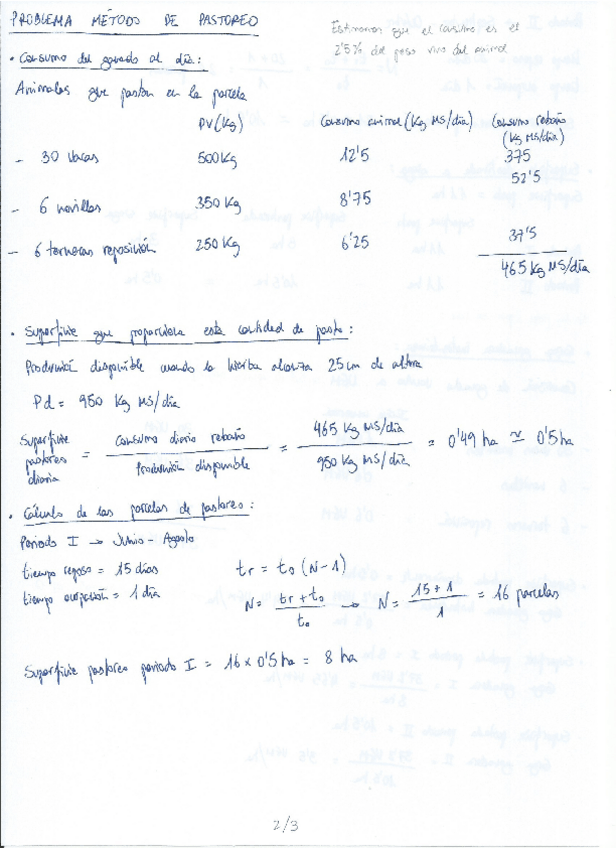 PROBLEMA MÉTODO DE PASTOREO
Estimamos que el consumo es el
2'5% del peso vivo del animal
• Consumo del ganado al día:
Animales que pastan en la parcela
PV(Kg) Consumo animal (Kg MS/día) Consumo rebaño (Kg MS/día)
- 30 vacas 500Kg 12'5 375
- 6 novillas 350 Kg 8'75 52'5
- 6 terneras reposición 250 Kg 6'25 37'5
465 Kg MS/día
• Superficie que proporciona esta cantidad de pasto:
Producción disponible cuando la hierba alcanza 25 cm de altura
Pd = 950 Kg MS/día
Superficie pastoreo diaria = Consumo diario rebaño / Producción disponible = 465 Kg MS/día / 950 Kg MS/día = 0'49 ha ≃ 0'5 ha
• Cálculo de las parcelas de pastoreo:
Periodo I → Junio - Agosto
tiempo reposo = 15 días tr = to (N-1)
tiempo ocupación = 1 día N = tr + to / to → N = 15 + 1 / 1 = 16 parcelas
Superficie pastoreo periodo I = 16 x 0'5 ha = 8 ha
2/3